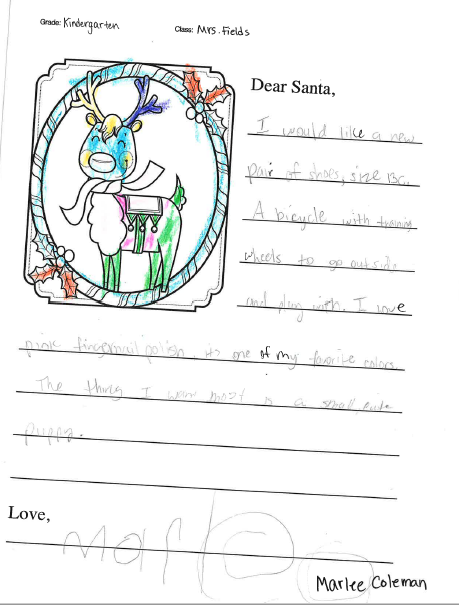 Grade: Kindergarten Class: Mrs. Fields
Dear Santa,
I would like a new
pair of shoes, size 13c.
A bicycle with training
wheels to go outside
and play with. I love
pink fingernail polish its one of my favorite colors.
The thing I want most is a small cute
puppy.
Love,
Marlee Coleman